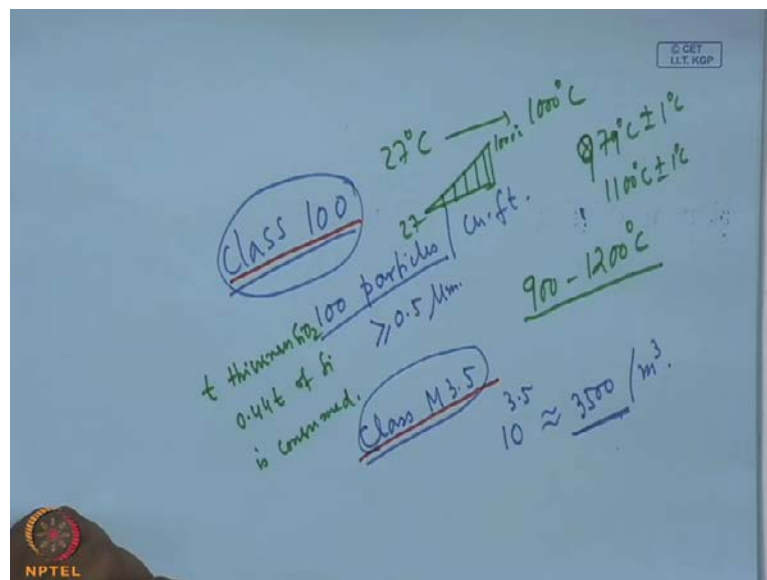 © CET
I.I.T. KGP
27°C → 1000°C
1000°C
27
979°C ± 1°C
1100°C ± 1°C
Class 100
100 particles / cu.ft.
≥ 0.5 μm.
900 - 1200°C
t thickness SiO2
0.44t of Si
is consumed.
Class M3.5
10^3.5 ≈ 3500 / m³.
NPTEL